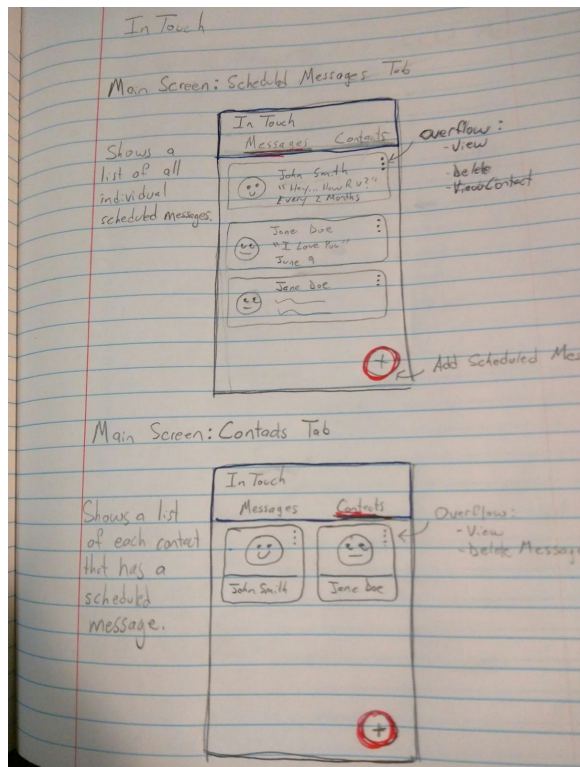 In Touch
Main Screen: Scheduled Messages Tab
Shows a
list of all
individual
scheduled messages.
In Touch
Messages Contacts
John Smith
"Hey... How R u?"
Every 2 Months
Jane Doe
"I Love You"
June 9
Jane Doe
+
Overflow:
- View
- Delete
- View Contact
Add Scheduled Mes
Main Screen: Contacts Tab
Shows a list
of each contact
that has a
scheduled
message.
In Touch
Messages Contacts
John Smith
Jane Doe
+
Overflow:
- View
- Delete Message